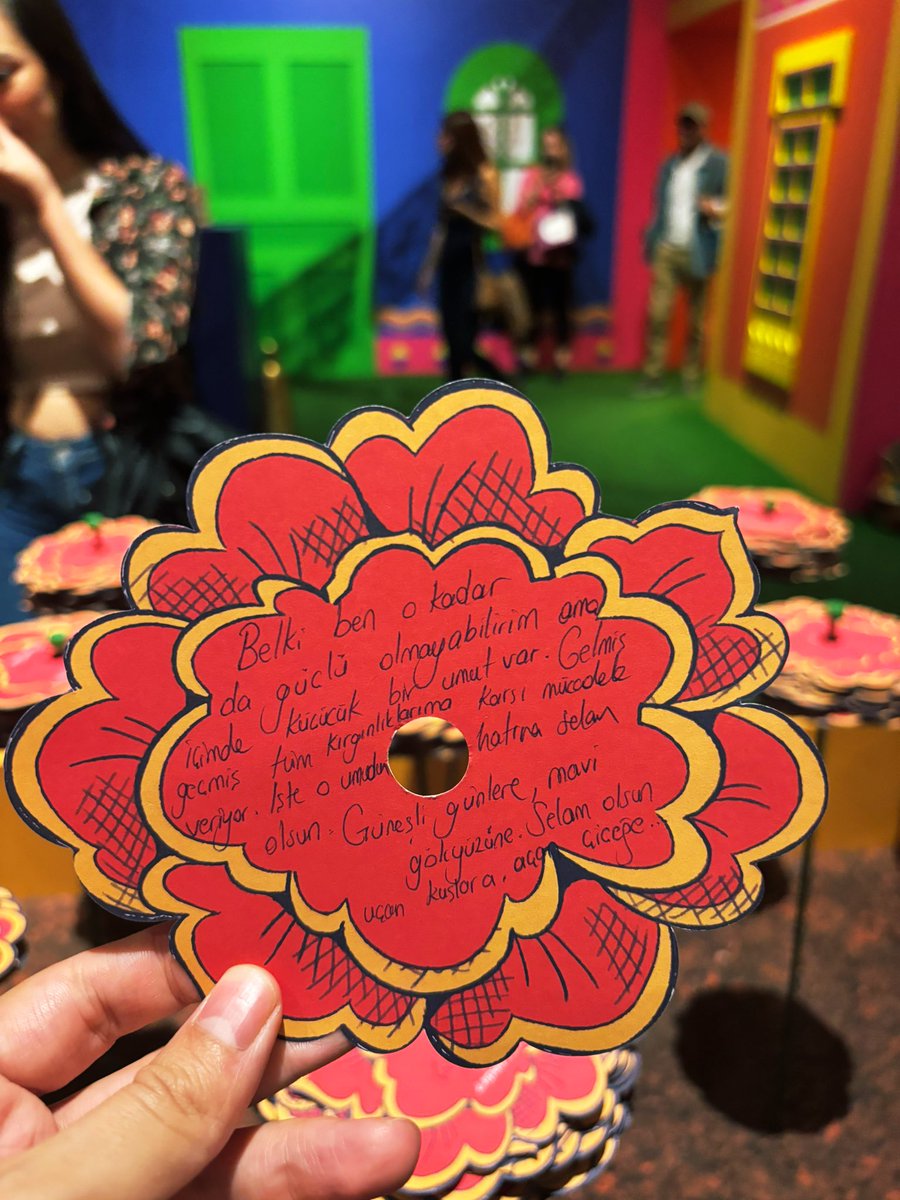 Belki ben o kadar
da güçlü olmayabilirim ama
içimde küçücük bir umut var. Gelmiş
geçmiş tüm kırgınlıklarıma karşı mücadele
veriyor. İşte o umudun hatına selam
olsun. Güneşli günlere, mavi
gökyüzüne. Selam olsun
uçan kuşlara, açan çiçeğe..